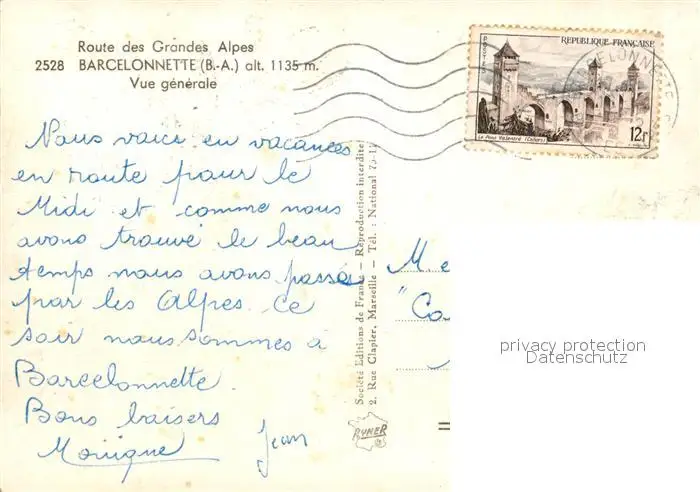 Route des Grandes Alpes
2528 BARCELONNETTE (B.-A.) alt. 1135 m.
Vue générale
POSTES
REPUBLIQUE FRANÇAISE
Le Pont Valentré (Cahors)
12f
Nous voici en vacances
en route pour le
Midi et comme nous
avons trouvé le beau
temps nous avons passés
par les Alpes. Ce
soir nous sommes à
Barcelonnette.
Bons baisers
Monique Jean
Société Editions de France — Reproduction interdite
2, Rue Clapier, Marseille — Tél. : National 75-11
RYNER
M. e
"Ca
privacy protection
Datenschutz